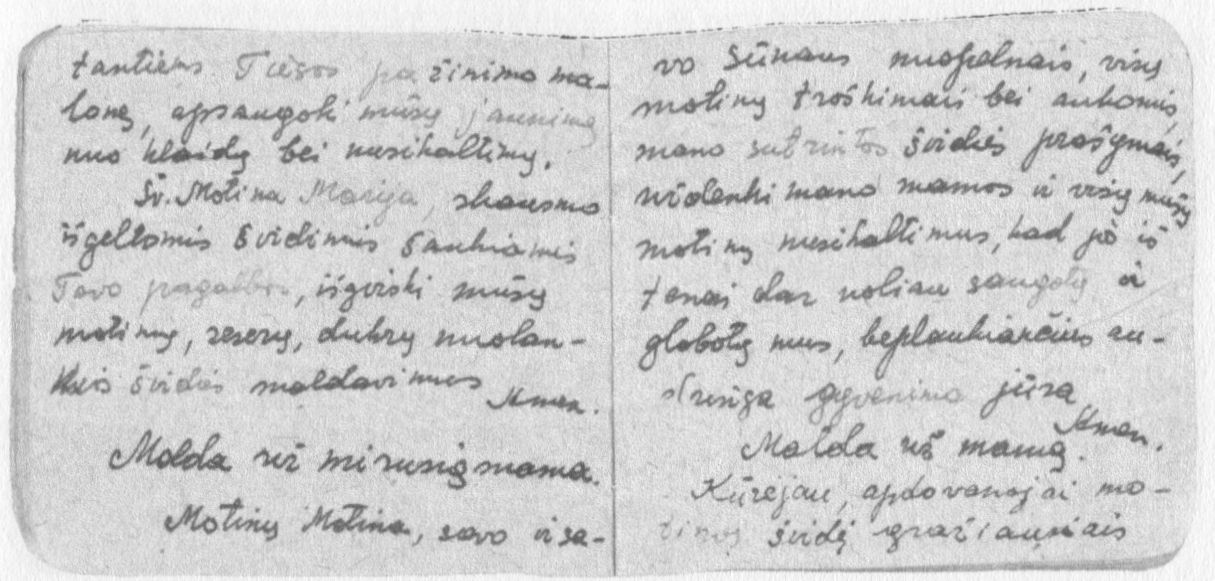 tantiems Tiesos pažinimo ma-
lonę, apsaugoki mūsų jaunimą
nuo klaidų bei nusikaltimų.
Šv. Motina Marija, skausmo
išgeltomis širdimis šaukiamės
Tavo pagalbos, išgirski mūsų
motinų, seserų, dukrų nuolan-
kius širdies maldavimus
Amen.
Malda už mirusią mamą.
Motinų Motina, savo visa-
vo Sūnaus nuopelnais, visų
motinų troškimais bei aukomis,
mano sutrintos širdies prašymais,
uždenki mano mamos ir visų mūsų
motinų nusikaltimus, kad jos iš
tenai dar uoliau saugotų ir
globotų mus, beplaukiančius au-
dringa gyvenimo jūra
Amen.
Malda už mamą.
Kūrėjau, apdovanojai mo-
tinos širdį gražiausiais